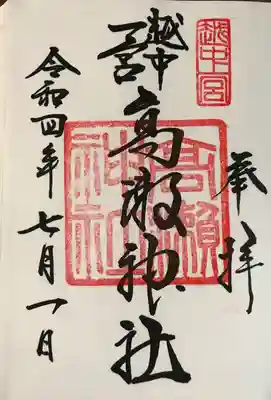 奉拝
越中宮
越中
一宮
高瀬神社
高瀬神社
令和四年七月一日